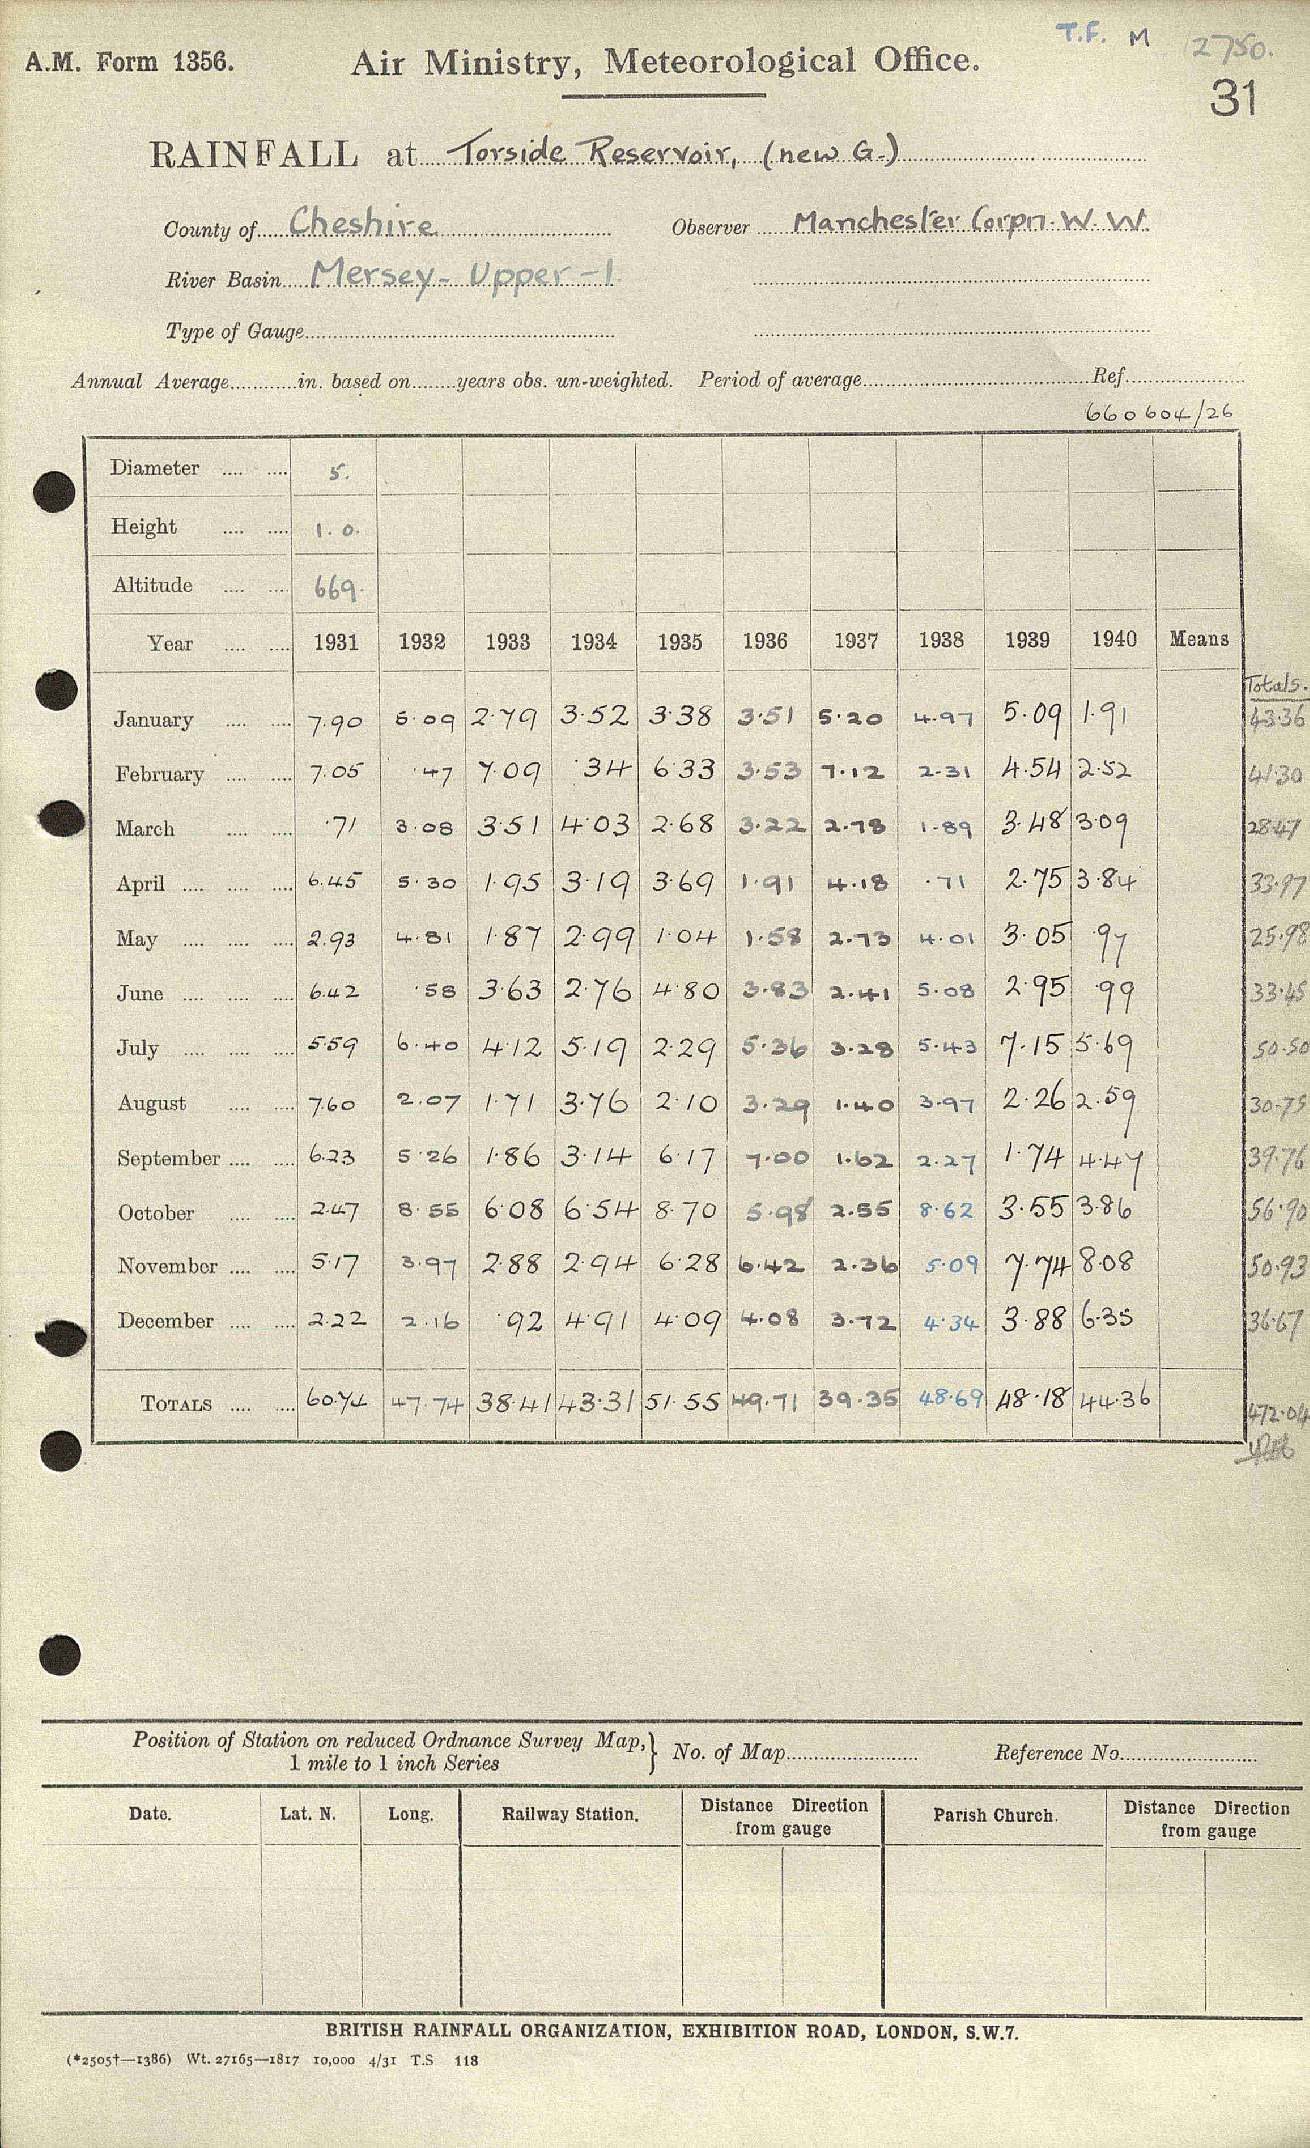 T.F. M 12750.
A.M. Form 1356. Air Ministry, Meteorological Office.
31
RAINFALL at Torside Reservoir, (new G.)
County of Cheshire Observer Manchester Corpn. W. W.
River Basin Mersey - Upper - 1
Type of Gauge
Annual Average in. based on years obs. un-weighted. Period of average Ref.
660604/26
Diameter 5.
Height 1. 0.
Altitude 669.
Year 1931 1932 1933 1934 1935 1936 1937 1938 1939 1940 Means
Totals.
January 7.90 5.09 2.79 3.52 3.38 3.51 5.20 4.97 5.09 1.91 43.36
February 7.05 .47 7.09 .34 6.33 3.53 7.12 2.31 4.54 2.52 41.30
March .71 3.08 3.51 4.03 2.68 3.22 2.78 1.89 3.48 3.09 28.47
April 6.45 5.30 1.95 3.19 3.69 1.91 4.18 .71 2.75 3.84 33.97
May 2.93 4.81 1.87 2.99 1.04 1.58 2.73 4.01 3.05 .97 25.98
June 6.42 .58 3.63 2.76 4.80 3.83 2.41 5.08 2.95 .99 33.45
July 5.59 6.40 4.12 5.19 2.29 5.36 3.28 5.43 7.15 5.69 50.50
August 7.60 2.07 1.71 3.76 2.10 3.29 1.40 3.97 2.26 2.59 30.75
September 6.23 5.26 1.86 3.14 6.17 7.00 1.62 2.27 1.74 4.47 39.76
October 2.47 8.55 6.08 6.54 8.70 5.98 2.55 8.62 3.55 3.86 56.90
November 5.17 3.97 2.88 2.94 6.28 6.42 2.36 5.09 7.74 8.08 50.93
December 2.22 2.16 .92 4.91 4.09 4.08 3.72 4.34 3.88 6.35 36.67
TOTALS 60.74 47.74 38.41 43.31 51.55 49.71 39.35 48.69 48.18 44.36 472.04
Position of Station on reduced Ordnance Survey Map, } No. of Map Reference No.
1 mile to 1 inch Series
Date. Lat. N. Long. Railway Station. Distance Direction from gauge Parish Church. Distance Direction from gauge
BRITISH RAINFALL ORGANIZATION, EXHIBITION ROAD, LONDON, S.W.7.
(*2505†—1386) Wt. 27165—1817 10,000 4/31 T.S 118